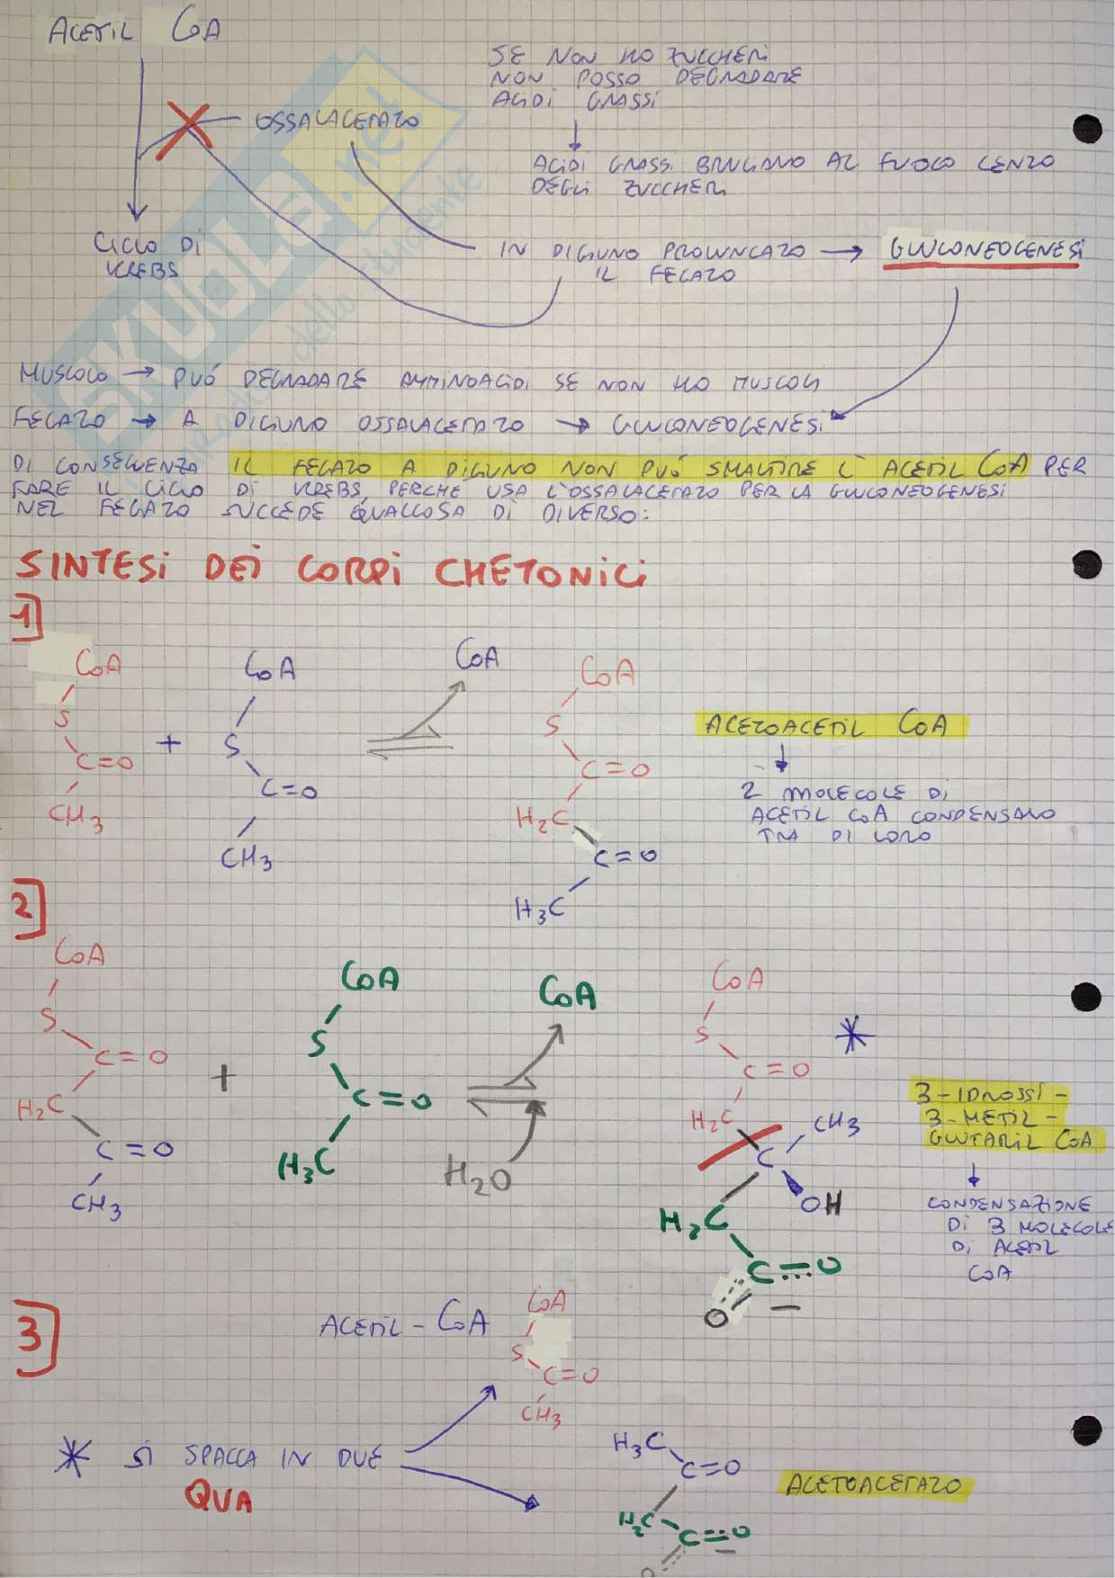 ACETIL CoA
SE NON HO ZUCCHERI
NON POSSO DEGRADARE
ACIDI GRASSI
OSSALACETATO
ACIDI GRASSI BRUCIANO AL FUOCO LENTO
DEGLI ZUCCHERI
CICLO DI
KREBS
IN DIGIUNO PROLUNGATO → GLUCONEOGENESI
IL FEGATO
SKUOLA.net
MUSCOLO → PUÓ DEGRADARE AMMINOACIDI SE NON HO MUSCOLI
FEGATO → A DIGIUNO OSSALACETATO → GLUCONEOGENESI
DI CONSEGUENZA IL FEGATO A DIGIUNO NON PUÓ SMALTIRE L'ACETIL CoA PER
FARE IL CICLO DI KREBS, PERCHE USA L'OSSALACETATO PER LA GLUCONEOGENESI
NEL FEGATO SUCCEDE QUALCOSA DI DIVERSO:
SINTESI DEI CORPI CHETONICI
1]
CoA CoA CoA CoA
S + S S
C=O C=O C=O
CH3 CH3 H2C
C=O
H3C
ACETOACETIL CoA
2 MOLECOLE DI
ACETIL CoA CONDENSANO
TRA DI LORO
2]
CoA CoA CoA CoA
S + S S *
C=O C=O C=O
H2C H3C H2O H2C CH3
C=O C OH
CH3 H2C
C=O
O -
3-IDROSSI-
3-METIL-
GLUTARIL CoA
CONDENSAZIONE
DI 3 MOLECOLE
DI ACETIL
CoA
3]
ACETIL-CoA CoA
S
C=O
CH3
* SI SPACCA IN DUE
QUA
H3C
C=O
H2C
C=O
O -
ACETOACETATO